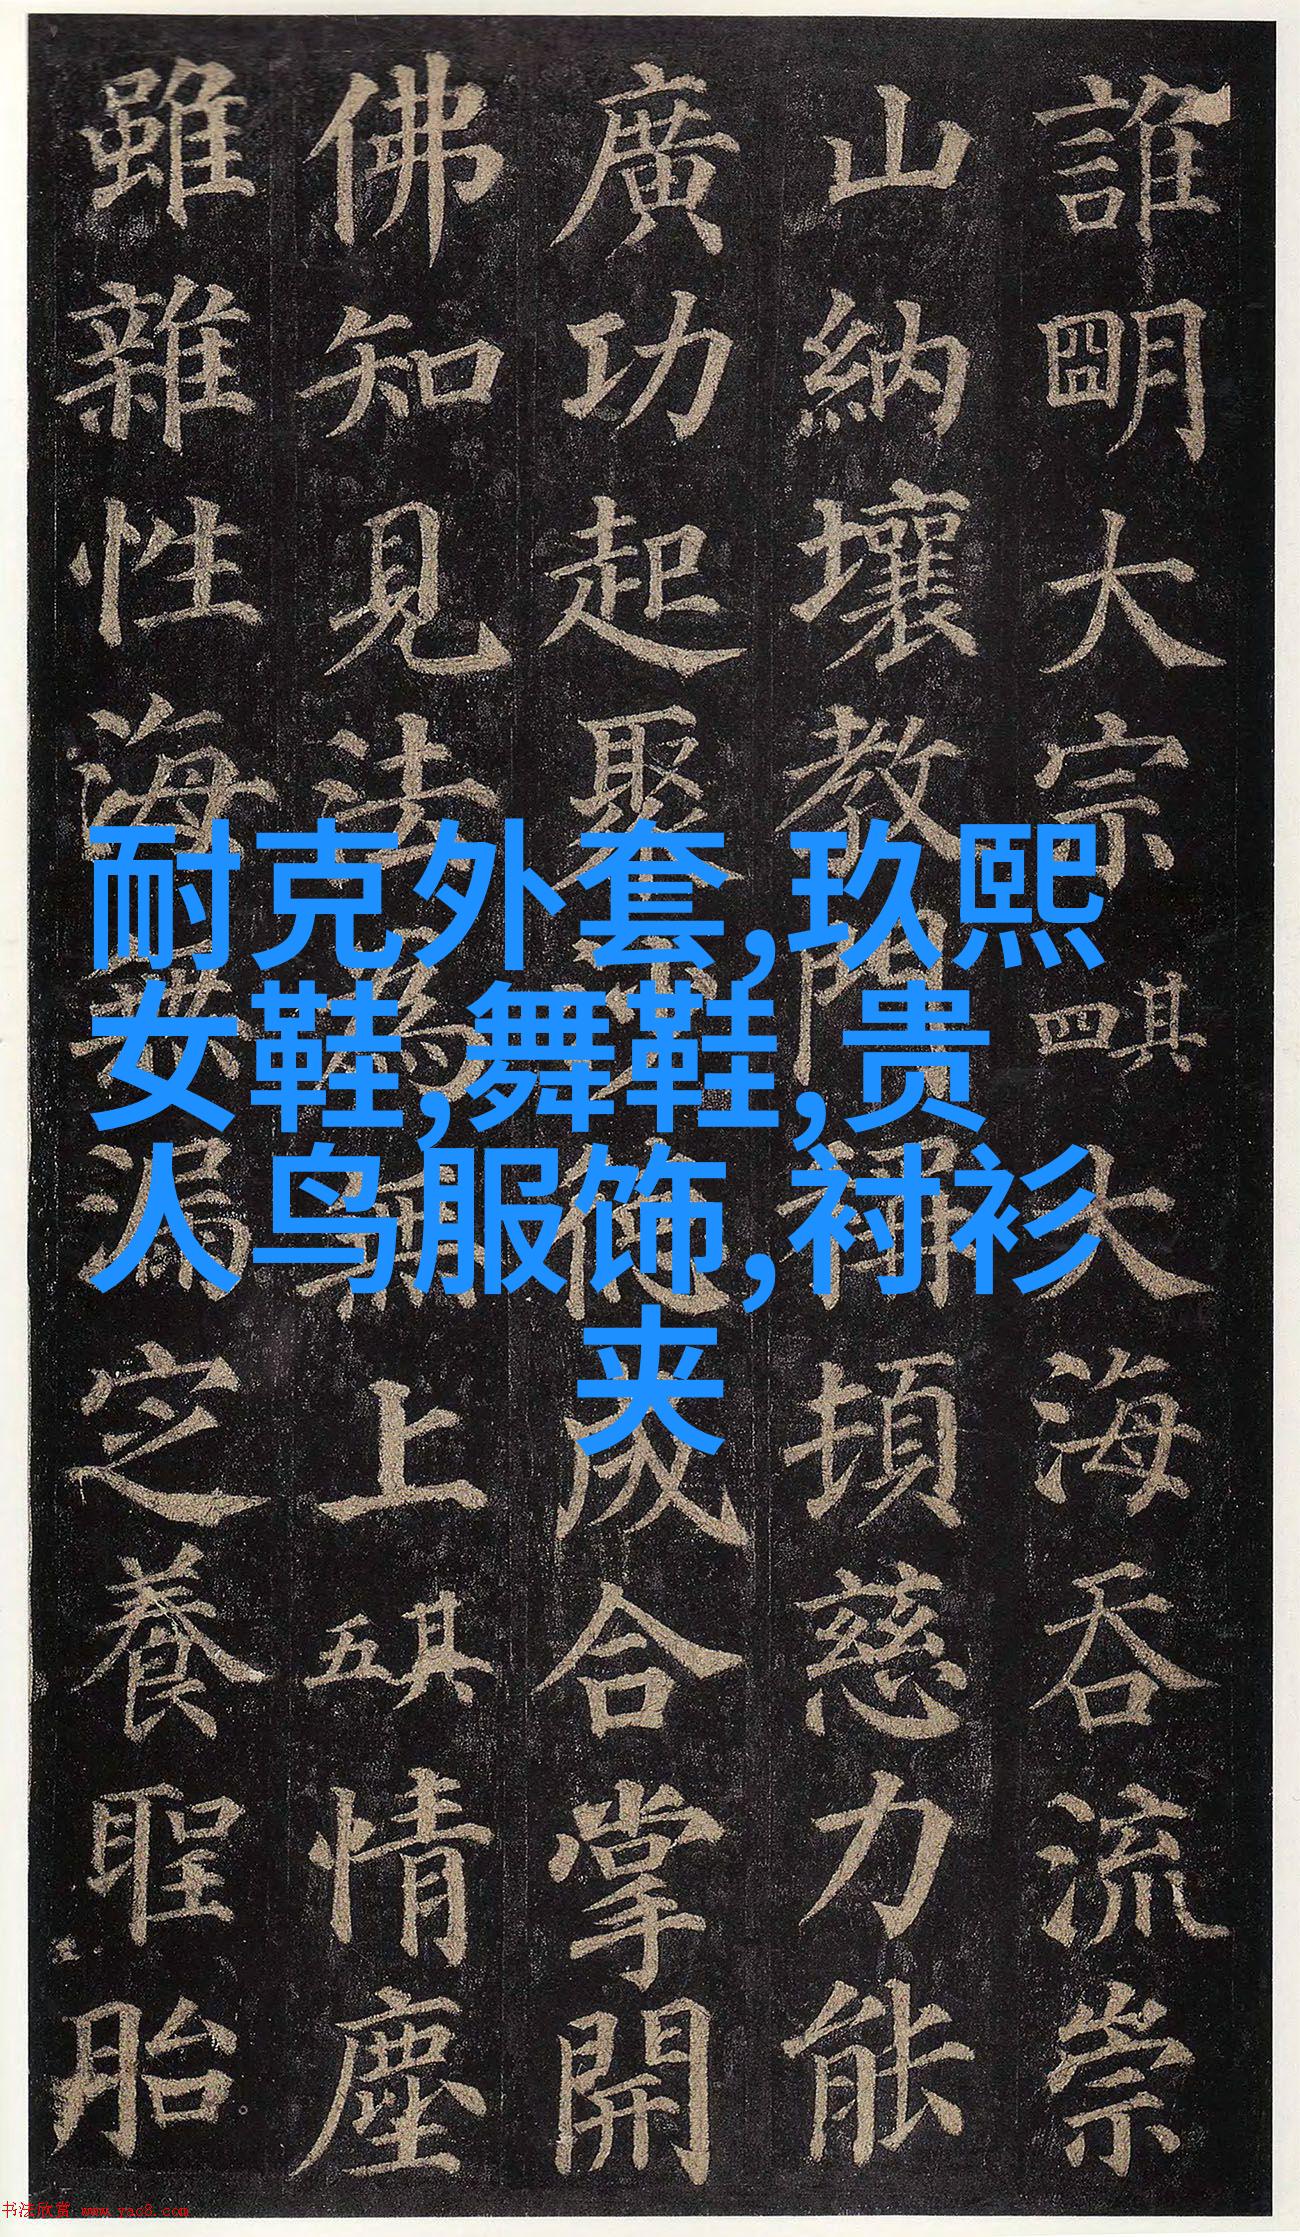 誰明大宗其四大海吞流崇
山納壤教門稱頓慈力能
廣功起聚沙德成合掌開
佛知見法為無上其五情塵
雖雜性海無漏定養聖胎
耐克外套,玖熙
女鞋,舞鞋,贵
人鸟服饰,衬衫
夹
书法欣赏 www.yac8.com